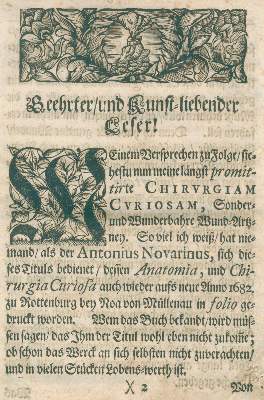 Geehrter/und Kunst-liebender
Leser!
MEinem Versprechen zu Folge/ sie-
hestu nun meine längst promit-
tirte CHIRVRGIAM
CVRIOSAM, Sonder-
und Wunderbahre Wund-Artz-
ney. So viel ich weiß/ hat nie-
mand/ als der Antonius Novarinus, sich die-
ses Tituls bedienet/ dessen Anatomia, und Chi-
rurgia Curiosa auch wieder auffs neue Anno 1682.
zu Rottenburg bey Noa von Müllenau in folio ge-
druckt worden. Wem das Buch bekandt/ wird müs-
sen sagen/ das Ihm der Titul wohl eben nicht zukom̄e;
ob schon das Werck an sich selbsten nicht zuverachten/
und in vielen Stücken Lobens-werth ist.
X 2 Von